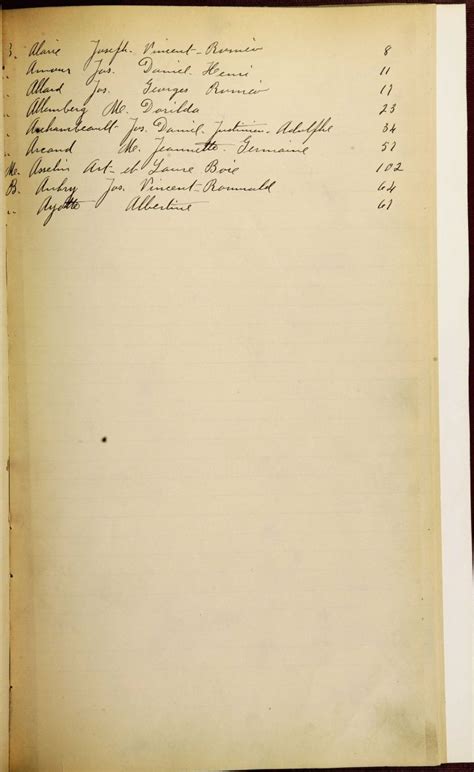 B. Alarie Joseph-Vincent-Roméo 8
" Amour Jos. Daniel Henri 11
" Allard Jos. Georges Roméo 17
" Allemberg M. Dorilda 23
" Archambeault Jos. Daniel Justinien-Adolphe 34
" Arcand M. Jeannette-Germaine 57
M. Asselin Art- et Laure Boie 102
B. Aubry Jos. Vincent-Romuald 64
" Ayotte Albertine 67